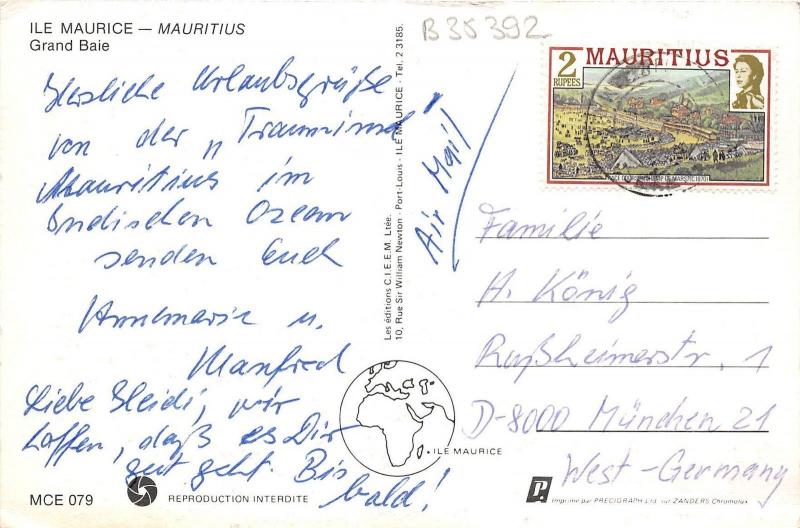 ILE MAURICE — MAURITIUS
Grand Baie
B35392
2
RUPEES
MAURITIUS
Herzliche Urlaubsgrüße
von der „Trauminsel
Mauritius im
Indischen Ozean
senden Euch
Annemarie u.
Manfred
Liebe Heidi, wir
hoffen, daß es Dir
gut geht. Bis
bald!
Les éditions C.I.E.E.M. Ltée.
10, Rue Sir William Newton - Port-Louis - ILE MAURICE - Tel. 2.3185.
Air Mail
Familie
H. König
Rußheimerstr. 1
D-8000 München 21
West-Germany
ILE MAURICE
MCE 079
REPRODUCTION INTERDITE
P.
Imprimé par PRECIGRAPH Ltd. sur ZANDERS Chromolux